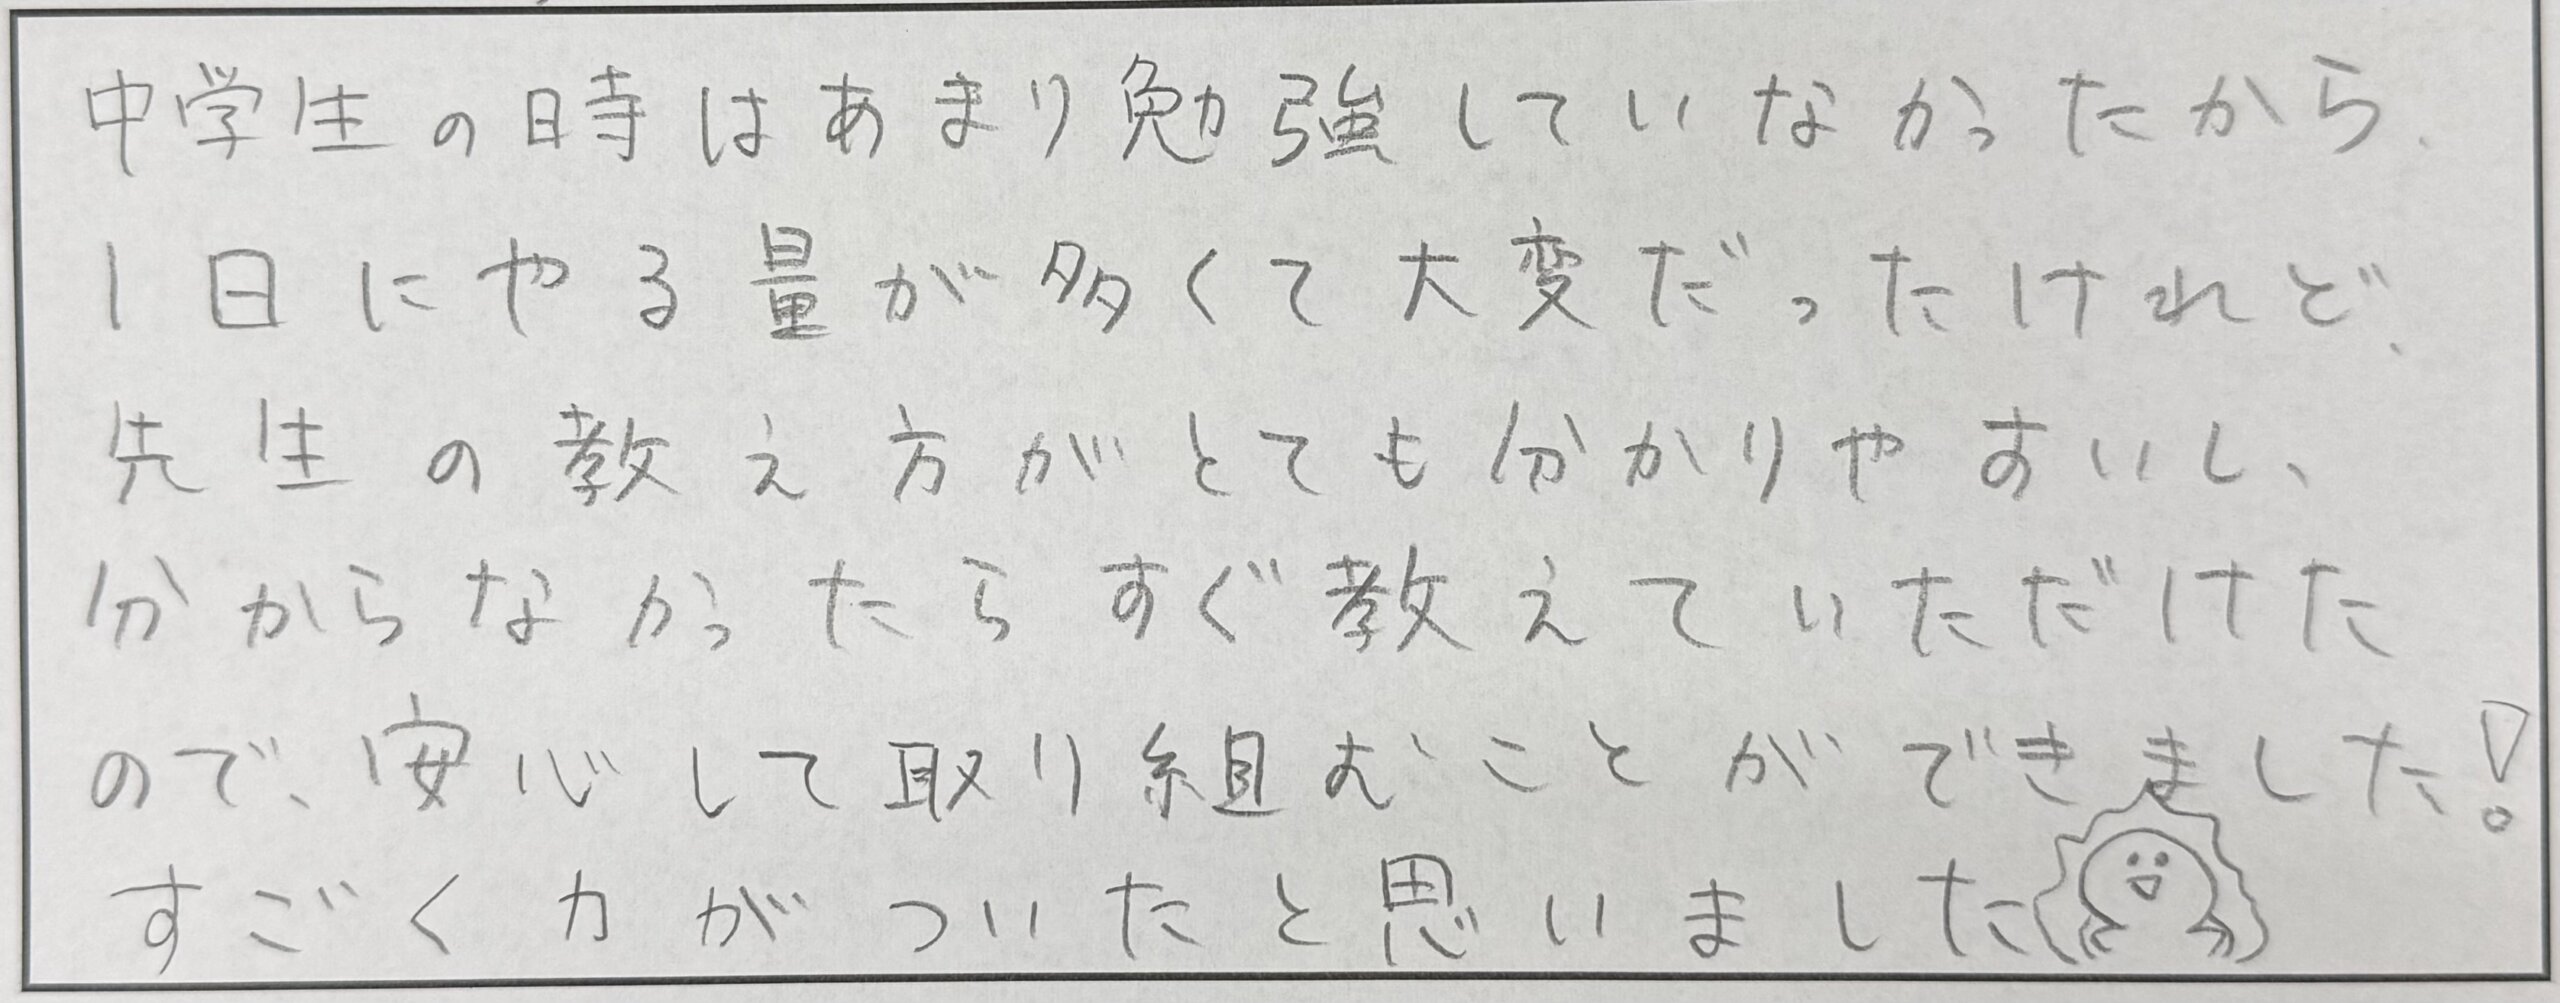 中学生の時はあまり勉強していなかったから、
1日にやる量が多くて大変だったけれど、
先生の教え方がとても分かりやすいし、
分からなかったらすぐ教えていただけた
ので、安心して取り組むことができました!
すごく力がついたと思いました